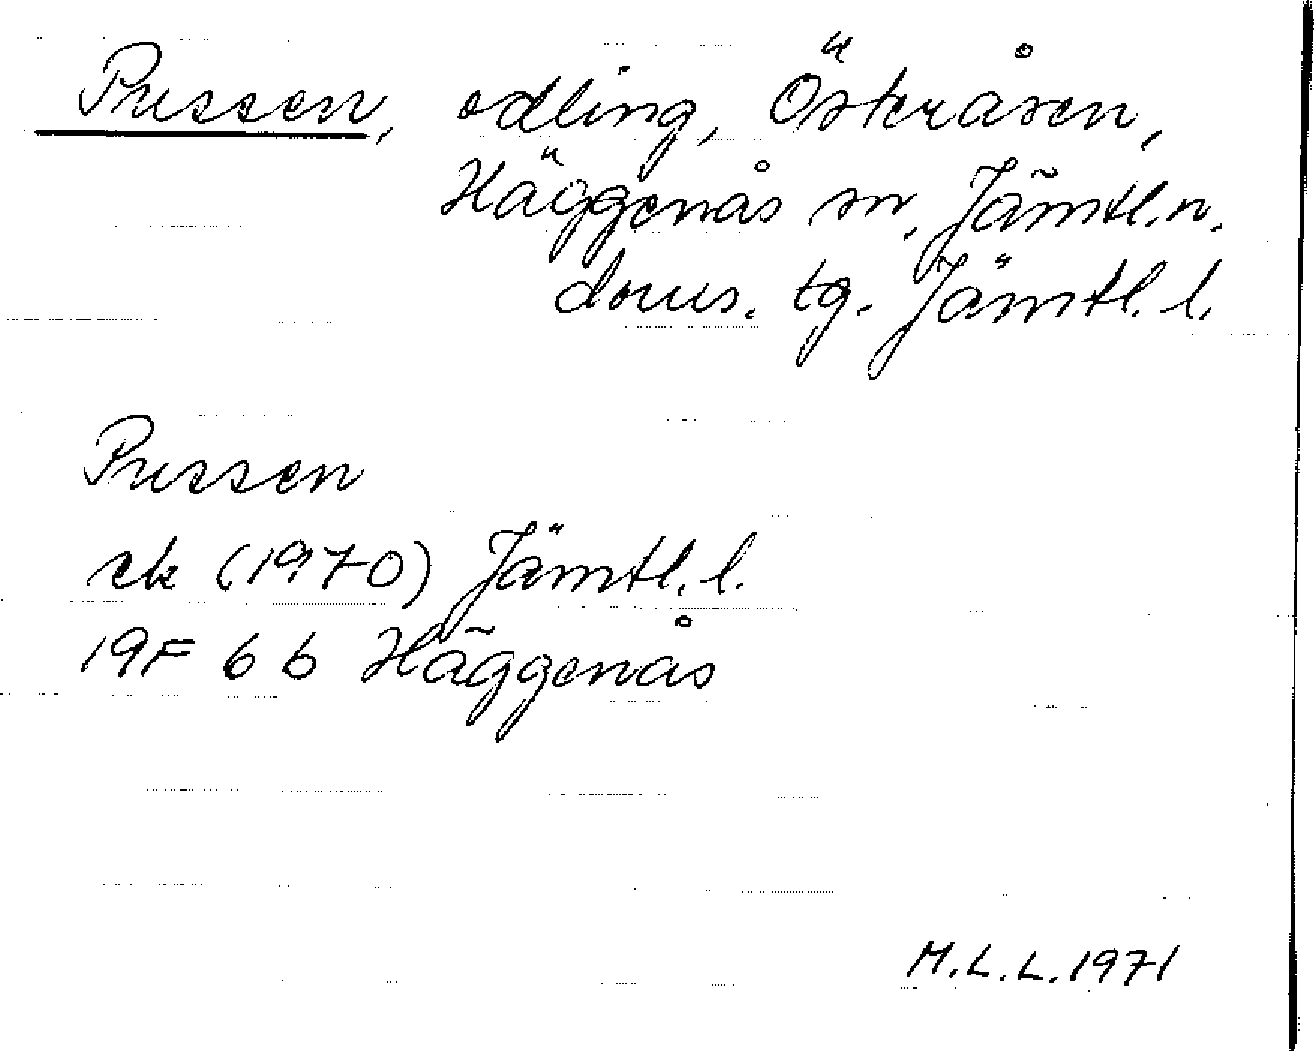 Pussen, odling, Österåsen,
Häggenås sn, Jämtl.n.
doms. tg. Jämtl. l.
Pussen
ek (1970) Jämtl. l.
19F 6 b Häggenås
M.L.L. 1971